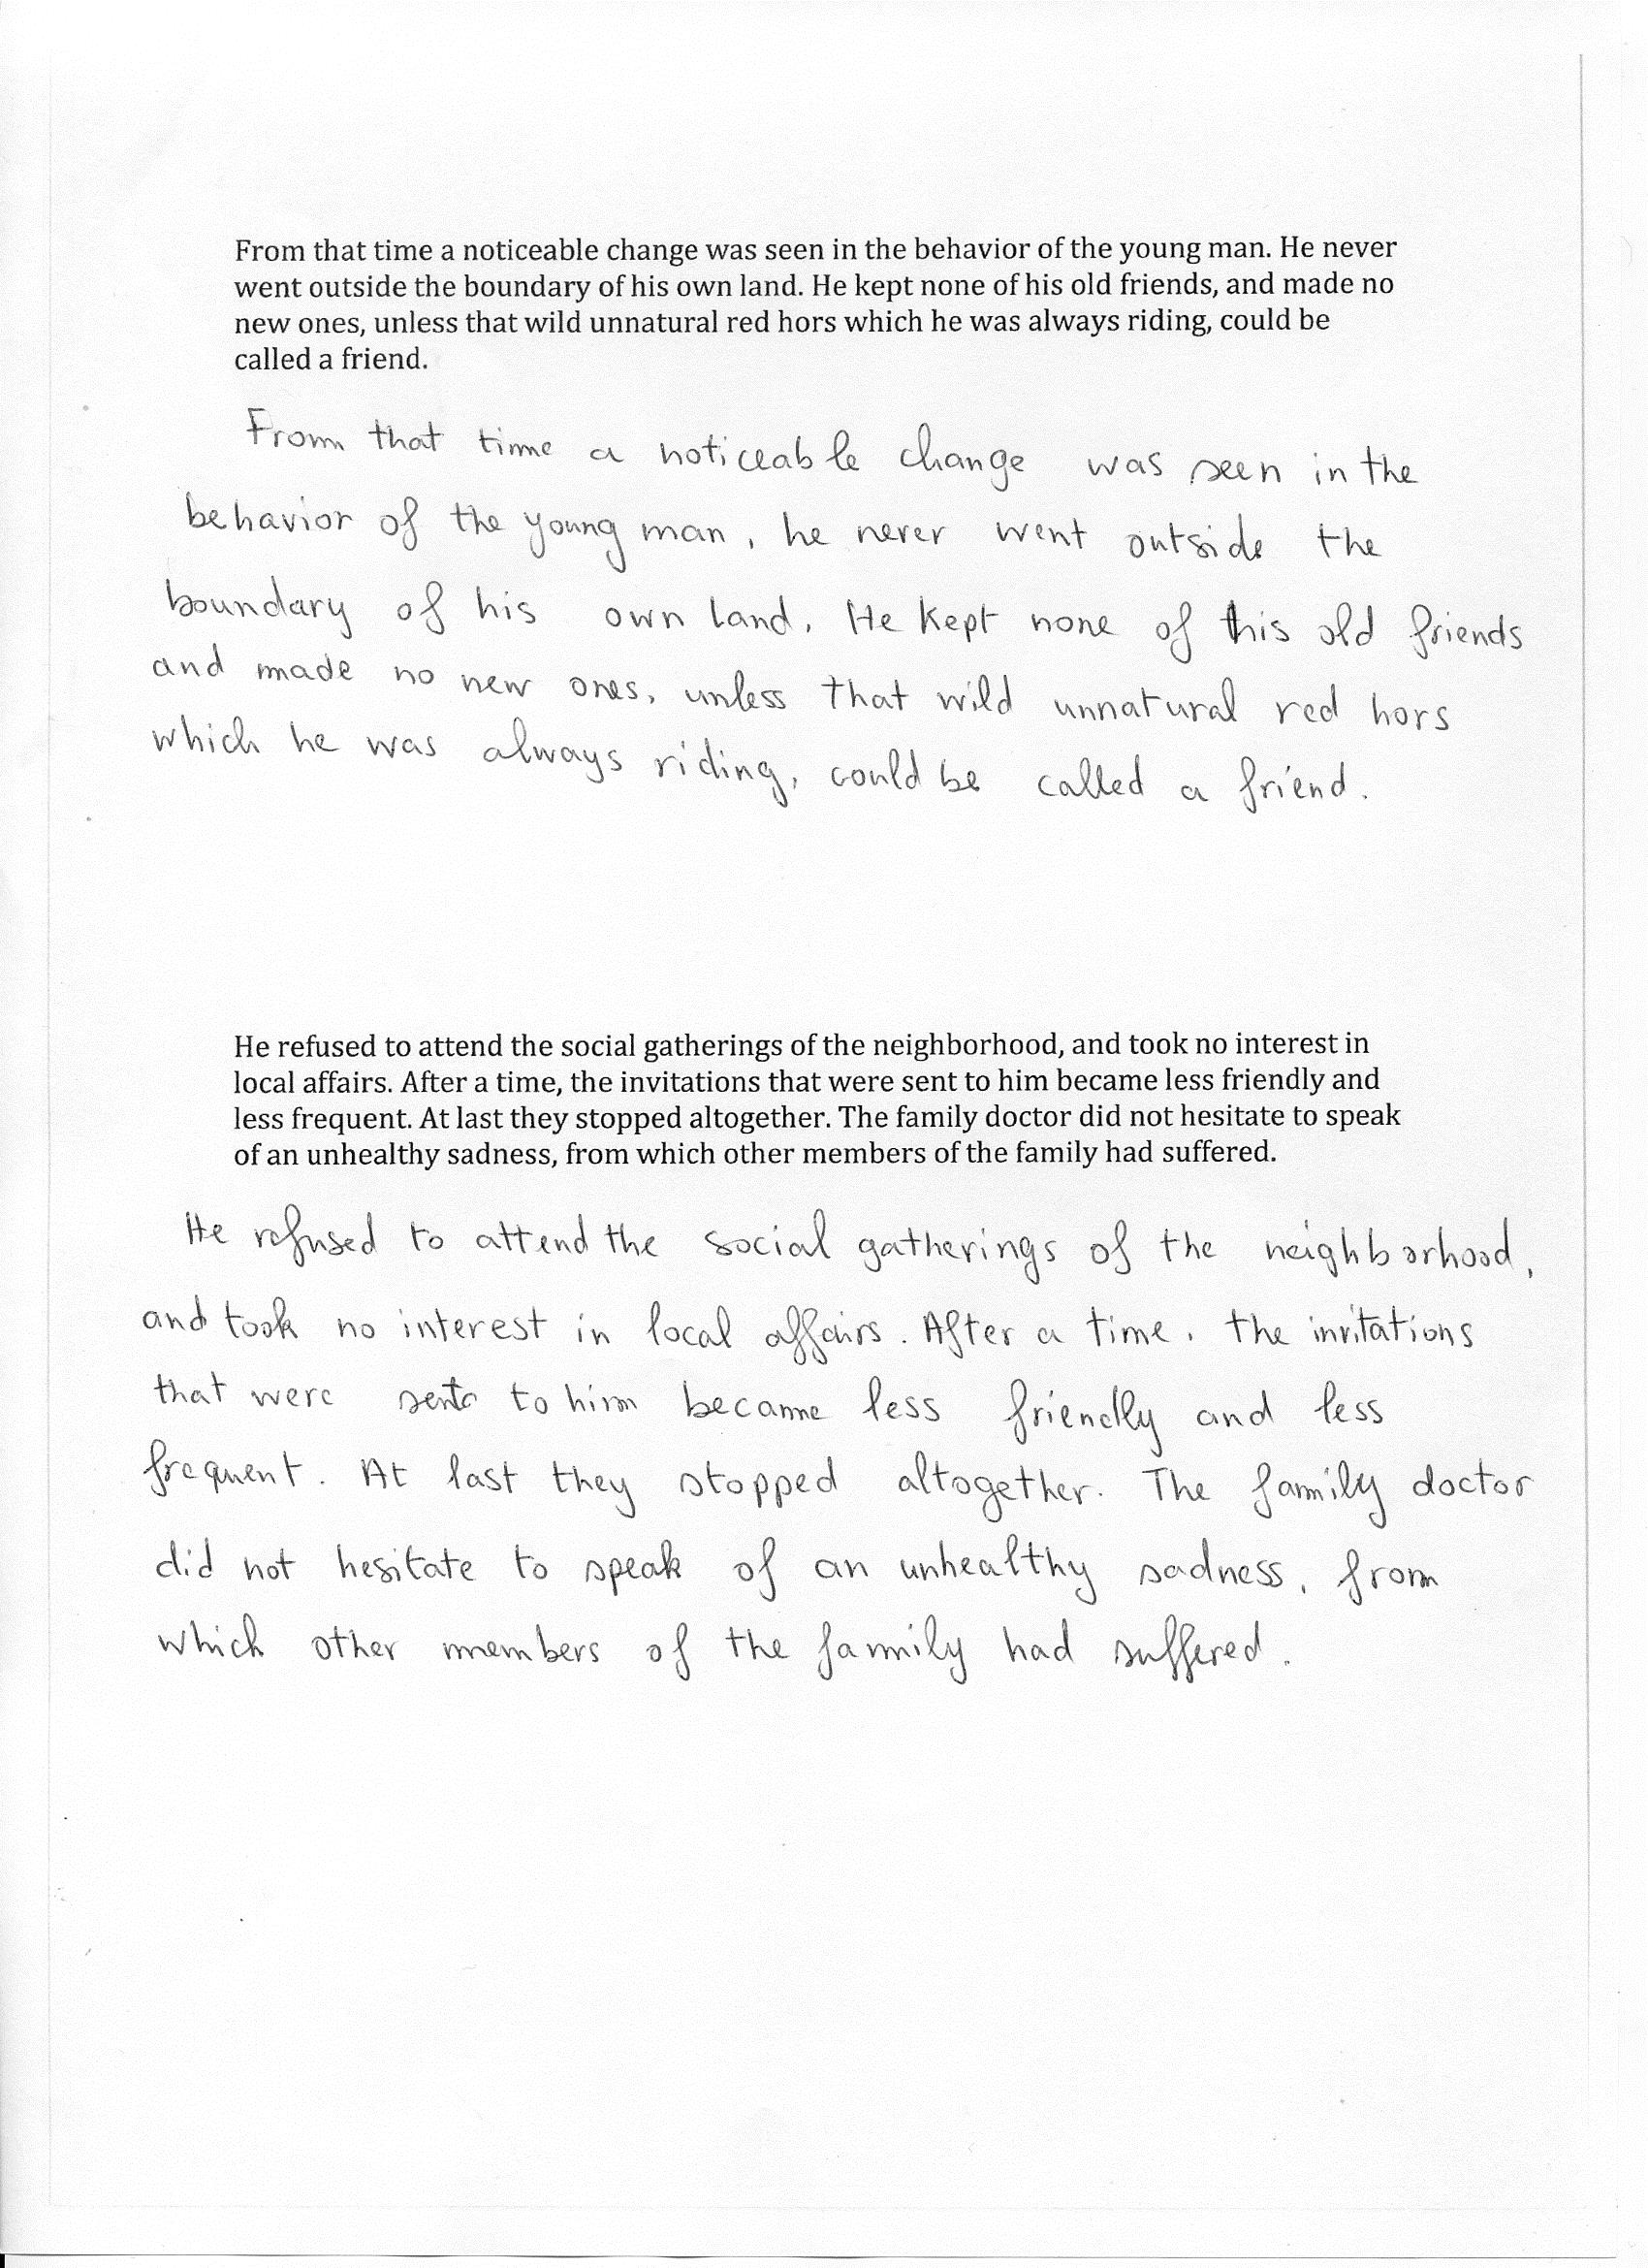 From that time a noticeable change was seen in the behavior of the young man. He never
went outside the boundary of his own land. He kept none of his old friends, and made no
new ones, unless that wild unnatural red hors which he was always riding, could be
called a friend.
From that time a noticeable change was seen in the
behavior of the young man, he never went outside the
boundary of his own land. He kept none of this old friends
and made no new ones, unless that wild unnatural red hors
which he was always riding, could be called a friend.
He refused to attend the social gatherings of the neighborhood, and took no interest in
local affairs. After a time, the invitations that were sent to him became less friendly and
less frequent. At last they stopped altogether. The family doctor did not hesitate to speak
of an unhealthy sadness, from which other members of the family had suffered.
He refused to attend the social gatherings of the neighborhood,
and took no interest in local affairs. After a time, the invitations
that were sent to him became less friendly and less
frequent. At last they stopped altogether. The family doctor
did not hesitate to speak of an unhealthy sadness, from
which other members of the family had suffered.